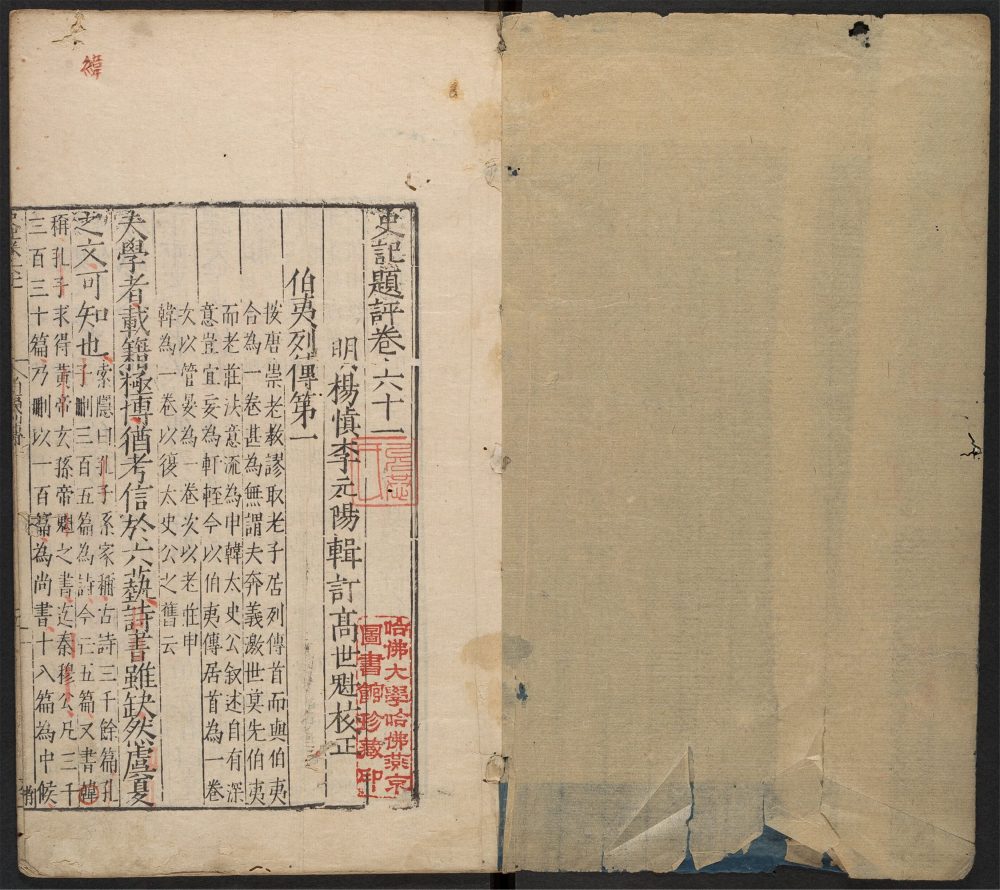 史記題評卷六十一
明楊慎李元陽輯訂高世魁校正
伯夷列傳第一
按唐崇老教謬取老子居列傳首而與伯夷
合為一卷甚為無謂夫奔義激世莫先伯夷
而老莊法意流為申韓太史公叙述自有深
意豈宜妄為軒輊今以伯夷傳居首為一卷
次以管晏為一卷次以老莊申
韓為一卷以復太史公之舊云
夫學者載籍極博猶考信於六藝詩書雖缺然虞夏
之文可知也
索隱曰孔子系家稱古詩三千餘篇孔
子刪三百五篇為詩今亡五篇又書緯
稱孔子求得黃帝玄孫帝魁之書迄秦穆公凡三千
三百三十篇乃刪以一百篇為尚書十八篇為中候
緯
哈佛大學哈佛燕京
圖書館珍藏印